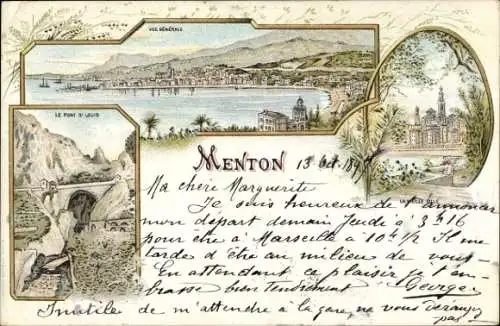 VUE GÉNÉRALE
LE PONT ST LOUIS
MENTON
13 Oct. 189
Ma chère Marguerite
Je suis heureux de
mon départ demain Jeudi à 3h16
pour être à Marseille à 10h 1/2 Il me
tarde d'être au milieu de vous
En attendant ce plaisir je t'em-
brasse bien tendrement Georges
Inutile de m'attendre à la gare, ne vous dérangez
pas